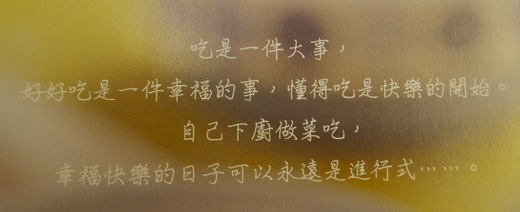 吃是一件大事，
好好吃是一件幸福的事，懂得吃是快樂的開始。
自己下廚做菜吃，
幸福快樂的日子可以永遠是進行式……。